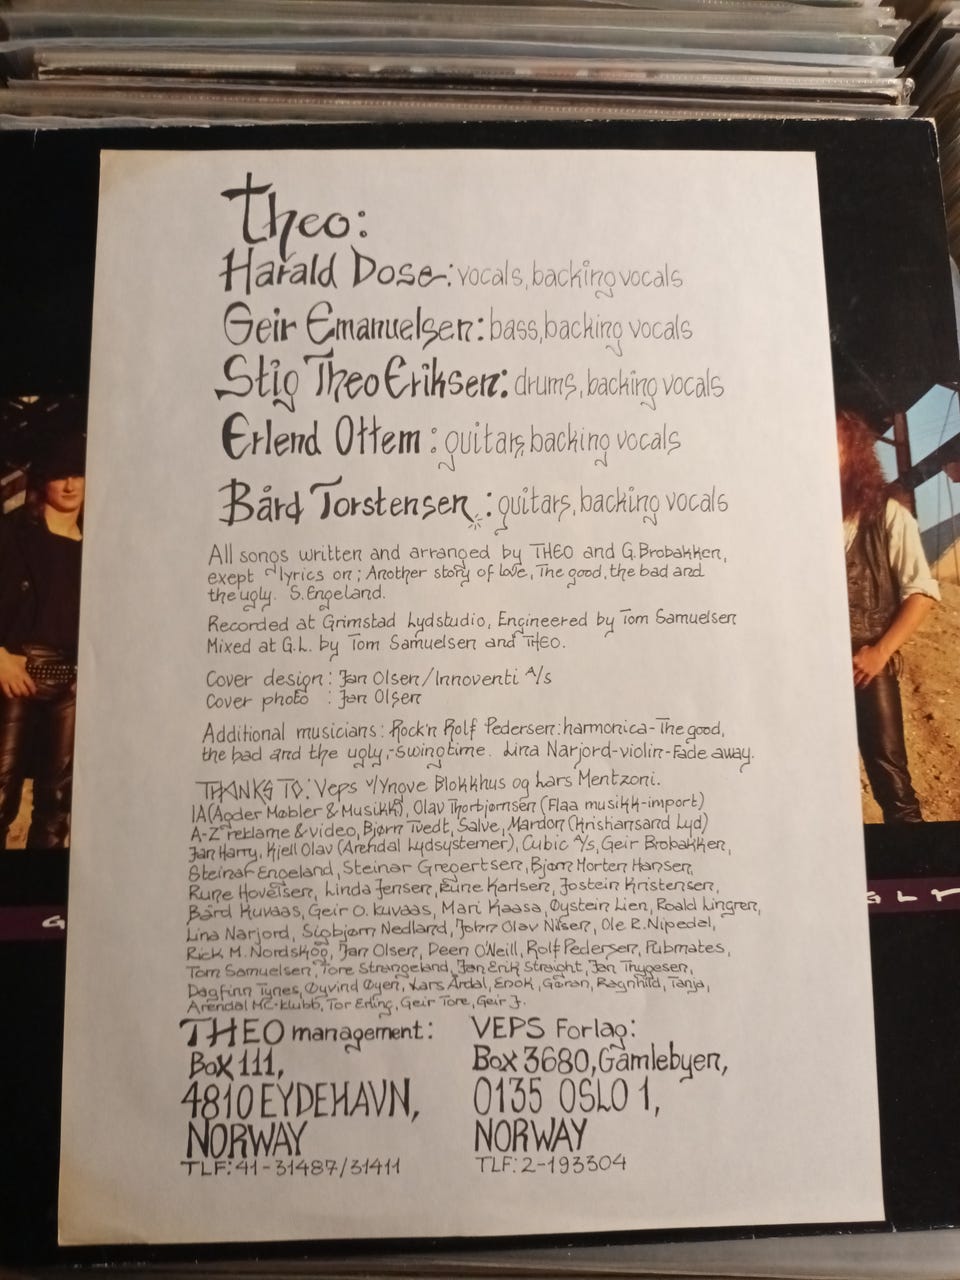 Theo:
Harald Dose: vocals, backing vocals
Geir Emanuelsen: bass, backing vocals
Stig Theo Eriksen: drums, backing vocals
Erlend Ottem: guitars, backing vocals
Bård Torstensen: guitars, backing vocals
All songs written and arranged by THEO and G. Brobakken,
exept lyrics on; Another story of love, The good, the bad and
the ugly. S. Engeland.
Recorded at Grimstad Lydstudio, Engineered by Tom Samuelsen
Mixed at G.L. by Tom Samuelsen and THEO.
Cover design: Jan Olsen/Innoventi A/s
Cover photo : Jan Olsen
Additional musicians: Rock'n Rolf Pedersen: harmonica-The good,
the bad and the ugly,-Swingtime. Lina Narjord-violin-Fade away.
THANKS TO: Veps v/Yngve Blokkhus og Lars Mentzoni.
IA (Agder Møbler & Musikk), Olav Thorbjørnsen (Flaa musikk-import)
A-Z reklame & video, Bjørn Tvedt, Salve, Mardon (Kristiansand Lyd)
Jan Harry, Kjell Olav (Arendal Lydsystemer), Cubic A/s, Geir Brobakken,
Steinar Engeland, Steinar Gregertsen, Bjørn Morten Hansen,
Rune Hovelsen, Linda Jensen, Rune Karlsen, Jostein Kristensen,
Bård Kuvaas, Geir O. Kuvaas, Mari Kaasa, Øystein Lien, Roald Lingren,
Lina Narjord, Sigbjørn Nedland, John Olav Nilsen, Ole R. Nipedel,
Rick M. Nordskog, Jan Olsen, Deen O'Neill, Rolf Pedersen, Pubmates,
Tom Samuelsen, Tore Strangeland, Jan Erik Straight, Jan Thygesen,
Dagfinn Tynes, Øyvind Øyen, Lars Ardal, Enok, Gøran, Ragnhild, Tanja,
Arendal MC-klubb, Tor Erling, Geir Tore, Geir J.
THEO management:
Box 111,
4810 EYDEHAVN,
NORWAY
TLF: 41-31487/31411
VEPS Forlag:
Box 3680, Gamlebyen,
0135 OSLO 1,
NORWAY
TLF: 2-193304